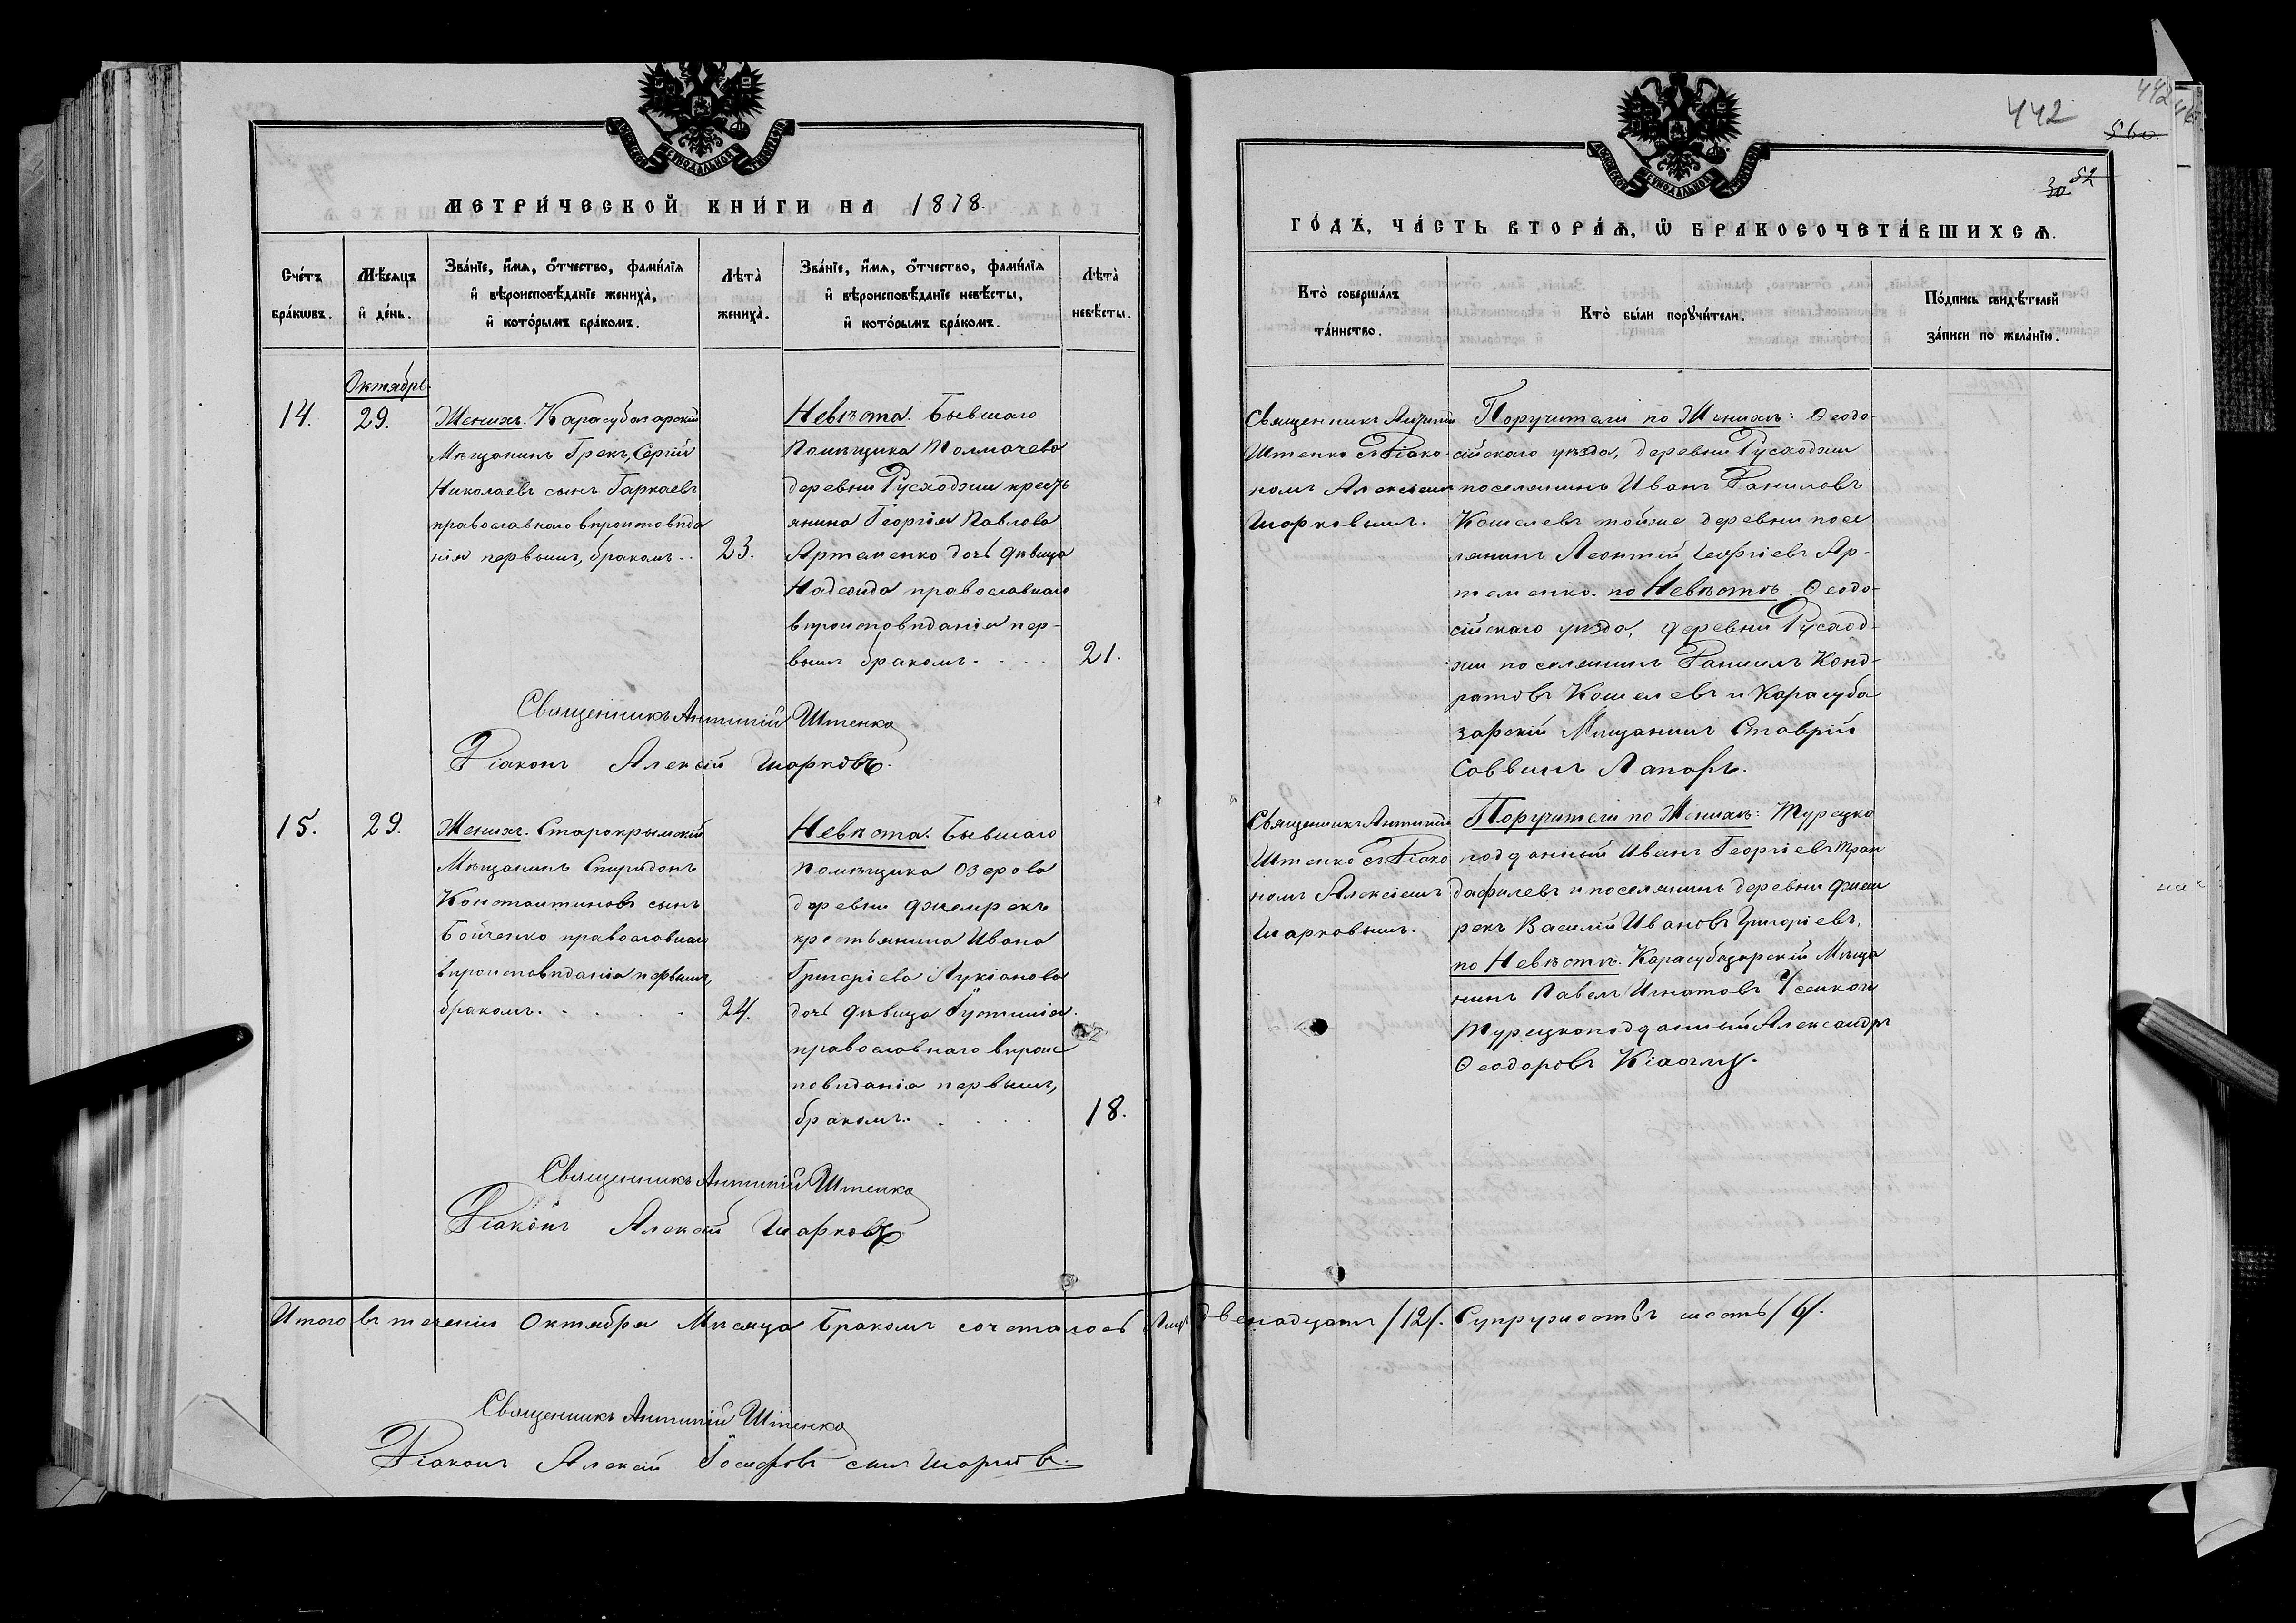 442
442
560.
30 52
МЕТРИ́ЧЕСКОЙ КНИ́ГИ НА 1878.
ГО́ДЪ, ЧА́СТЬ ВТОРА́Ѧ, Ѡ҆ БРАКОСОЧЕТА́ВШИХСѦ.
Сче́тъ бра́кѡвъ.
Мѣ́сяцъ и҆ де́нь.
Зва́нїе, и҆́мѧ, ѻ҆́тчество, фами́лїѧ
и҆ вѣроисповѣ́данїе жениха̀,
и҆ кото́рымъ бра́комъ.
Лѣта̀ жениха̀.
Зва́нїе, и҆́мѧ, ѻ҆́тчество, фами́лїѧ
и҆ вѣроисповѣ́данїе невѣ́сты,
и҆ кото́рымъ бра́комъ.
Лѣта̀ невѣ́сты.
Кто̀ соверша́лъ
та́инство.
Кто̀ бы́ли порꙋчи́тели.
По́дпись свидѣ́телей
за́писи по жела́нїю.
Октябрь.
14.
29.
Женихъ. Карасубазарскій
Мѣщанинъ Грекъ, Сергій
Николаевъ сынъ Гаркаевъ
православнаго вѣроисповѣда
нія первымъ, бракомъ..
23.
Невѣста. Бывшаго
Помѣщика Толмачева
деревни Русходжи кресть
янина Георгія Павлова
Артеменко дочь дѣвица
Надежда православнаго
вѣроисповѣданія пер-
вымъ бракомъ. . . .
21.
Священникъ Антипій
Штенко съ Діако
номъ Алексѣемъ
Шарковымъ.
Поручители по Женихѣ: Ѳеодо-
сійскаго уѣзда, деревни Русходжи
поселянинъ Иванъ Даниловъ
Кошелевъ тойже деревни посе
лянинъ Леонтій Георгіевъ Ар-
теменко. по Невѣстѣ. Ѳеодо-
сійскаго уѣзда, деревни Русход-
жи поселянинъ Даніилъ Конд-
ратовъ Кошелевъ и Карасуба
зарскій Мѣщанинъ Ставрій
Саввинъ Лапоръ.
Священникъ Антипій Штенко
Діаконъ Алексѣй Шарковъ.
15.
29.
Женихъ. Старокрымскій
Мѣщанинъ Спиридонъ
Константиновъ сынъ
Бойченко православнаго
вѣроисповѣданія первымъ,
бракомъ. . . . .
24.
Невѣста. Бывшаго
помѣщика Озерова
деревни Джемрекъ
крестьянина Ивана
Григоріева Лукіанова
дочь дѣвица Іустинія
православнаго вѣроис
повѣданія первымъ,
бракомъ. . . . .
18.
Священникъ Антипій
Штенко съ Діако
номъ Алексіемъ
Шарковымъ.
Поручители по Женихѣ: Турецко
подданный Иванъ Георгіевъ Тран
дафилевъ и поселянинъ деревни Джем
рекъ Василій Ивановъ Григоріевъ.
по Невѣстѣ. Карасубазарскій Мѣща
нинъ Павелъ Игнатовъ
Турецкоподданный Александръ
Ѳеодоровъ
Священникъ Антипій Штенко
Діаконъ Алексѣй Шарковъ
Итого въ теченіи Октября Мѣсяца Бракомъ сочеталось Лицъ двенадцать /12/. Супружествъ шесть /6/.
Священникъ Антипій Штенко
Діаконъ Алексѣй Іосифовъ сынъ Шарковъ.